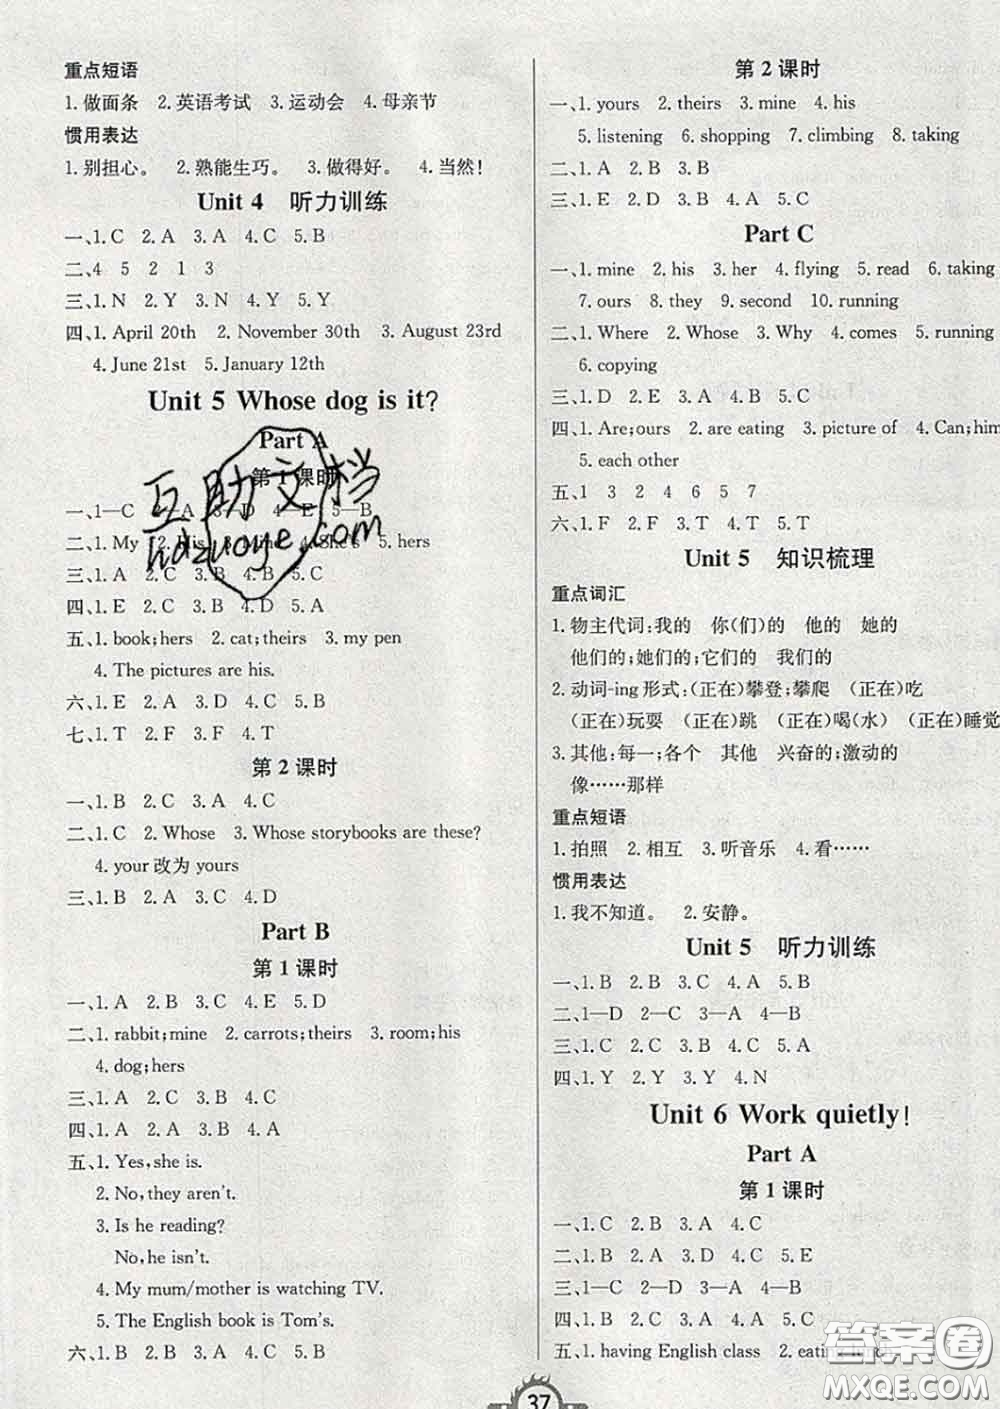 重点短语
1. 做面条 2. 英语考试 3. 运动会 4. 母亲节
惯用表达
1. 别担心。 2. 熟能生巧。 3. 做得好。 4. 当然！
Unit 4 听力训练
一、1. C 2. A 3. A 4. C 5. B
二、4 5 2 1 3
三、1. N 2. Y 3. N 4. Y 5. Y
四、1. April 20th 2. November 30th 3. August 23rd
4. June 21st 5. January 12th
Unit 5 Whose dog is it?
Part A
第 1 课时
一、1—C 2. A 3. D 4—E 5—B
二、1. My 2. His 3. Mine 4. She's 5. hers
三、1. A 2. C 3. B 4. B 5. C
四、1. E 2. C 3. B 4. D 5. A
五、1. book;hers 2. cat;theirs 3. my pen
4. The pictures are his.
六、1. E 2. A 3. B 4. D 5. C
七、1. T 2. F 3. F 4. T
第 2 课时
一、1. B 2. C 3. A 4. C
二、1. C 2. Whose 3. Whose storybooks are these?
4. your 改为 yours
三、1. B 2. A 3. C 4. D
Part B
第 1 课时
一、1. A 2. B 3. C 4. E 5. D
二、1. rabbit;mine 2. carrots;theirs 3. room;his
4. dog;hers
三、1. A 2. C 3. B 4. C
四、1. A 2. A 3. B 4. A
五、1. Yes, she is.
2. No, they aren't.
3. Is he reading?
No, he isn't.
4. My mum/mother is watching TV.
5. The English book is Tom's.
六、1. B 2. B 3. A 4. C 5. B
第 2 课时
一、1. yours 2. theirs 3. mine 4. his
5. listening 6. shopping 7. climbing 8. taking
二、1. A 2. B 3. B
三、1. E 2. D 3. B 4. A 5. C
Part C
一、1. mine 2. his 3. her 4. flying 5. read 6. taking
7. ours 8. they 9. second 10. running
二、1. Where 2. Whose 3. Why 4. comes 5. running
6. copying
三、1. D 2. E 3. A 4. B 5. C
四、1. Are;ours 2. are eating 3. picture of 4. Can;him
5. each other
五、1 3 2 4 6 5 7
六、1. F 2. F 3. T 4. T 5. T
Unit 5 知识梳理
重点词汇
1. 物主代词：我的 你(们)的 他的 她的
他们的；她们的；它们的 我们的
2. 动词-ing 形式：(正在)攀登；攀爬 (正在)吃
(正在)玩耍 (正在)跳 (正在)喝(水) (正在)睡觉
3. 其他：每一；各个 其他 兴奋的；激动的
像……那样
重点短语
1. 拍照 2. 相互 3. 听音乐 4. 看……
惯用表达
1. 我不知道。 2. 安静。
Unit 5 听力训练
一、1. B 2. B 3. C 4. A 5. B
二、1—D 2—C 3—A 4—B
三、1. C 2. C 3. B 4. A 5. A
四、1. Y 2. Y 3. Y 4. N
Unit 6 Work quietly!
Part A
第 1 课时
一、1. C 2. B 3. A 4. C
二、1. B 2. A 3. D 4. C 5. E
三、1—C 2—D 3—A 4—B
四、1. C 2. B 3. A 4. B 5. A
五、1. having English class 2. eating
37
互助文档
hdzuoye.com
答案圈
MXQE.COM